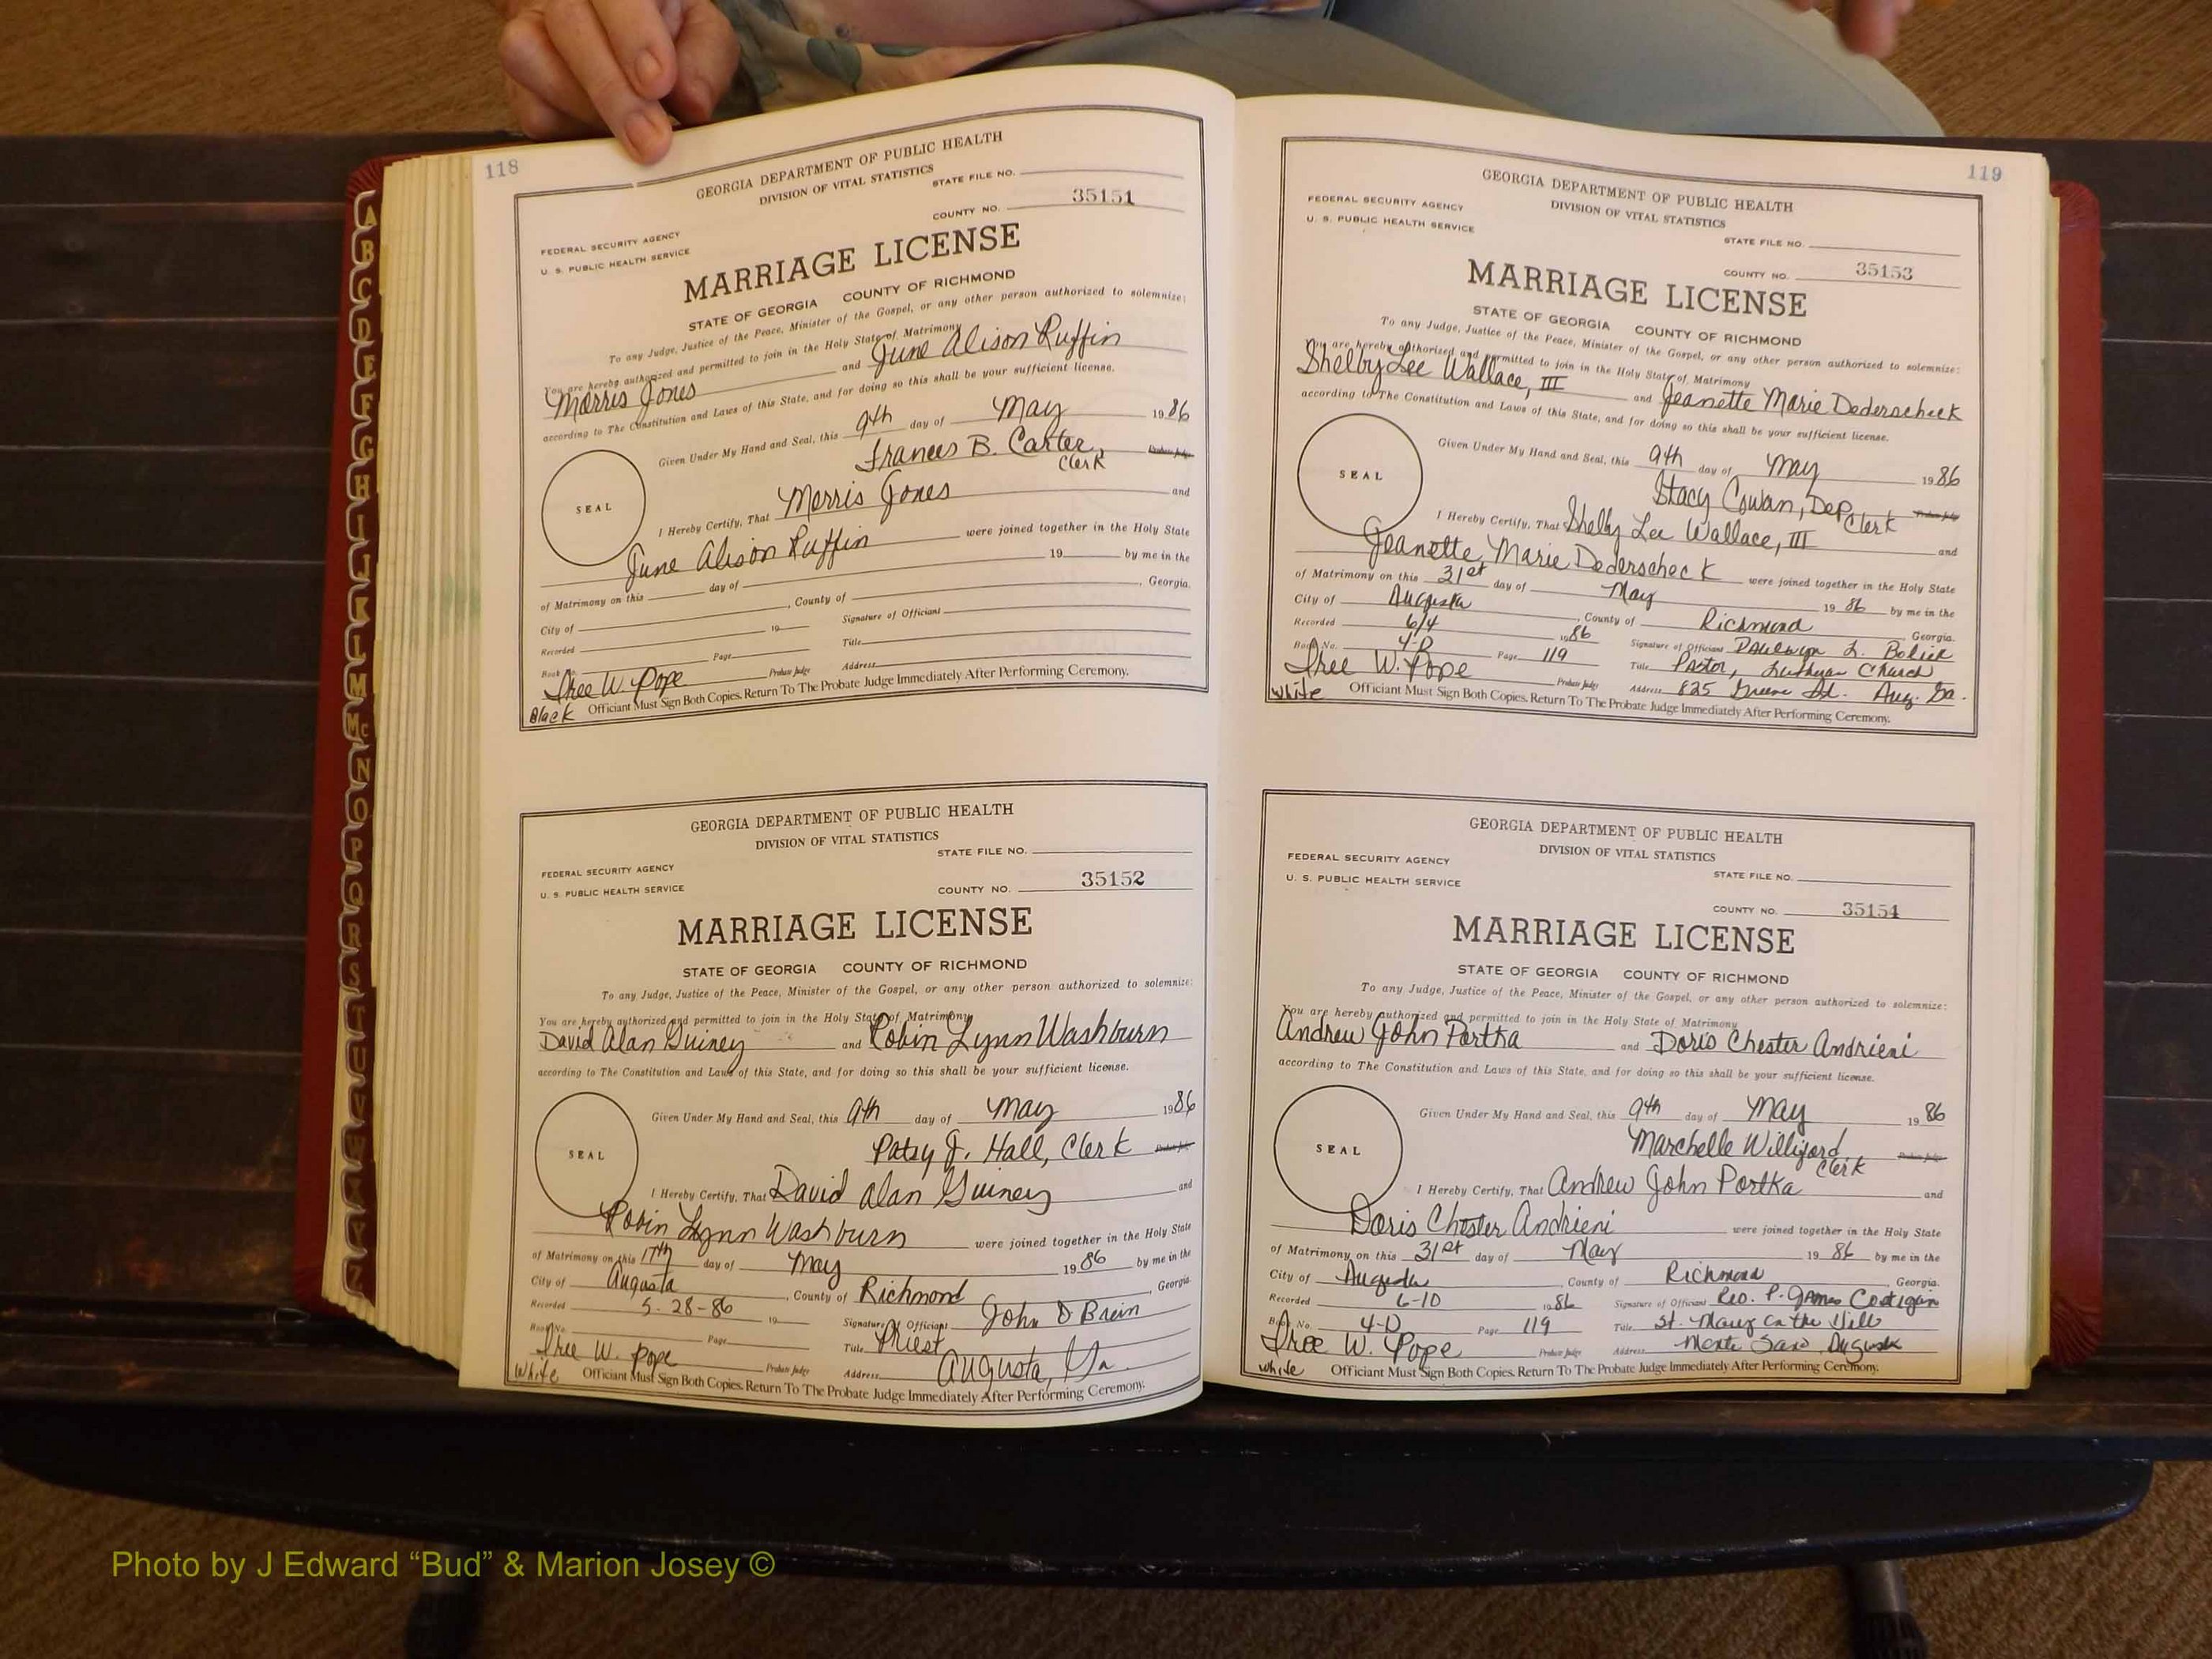 118
GEORGIA DEPARTMENT OF PUBLIC HEALTH
DIVISION OF VITAL STATISTICS
STATE FILE NO.
COUNTY NO. 35151
FEDERAL SECURITY AGENCY
U. S. PUBLIC HEALTH SERVICE
MARRIAGE LICENSE
STATE OF GEORGIA COUNTY OF RICHMOND
To any Judge, Justice of the Peace, Minister of the Gospel, or any other person authorized to solemnize:
You are hereby authorized and permitted to join in the Holy State of Matrimony
Morris Jones and June Alison Ruffin
according to The Constitution and Laws of this State, and for doing so this shall be your sufficient license.
Given Under My Hand and Seal, this 9th day of May 1986
Frances B. Carter, Probate Judge
Clerk
SEAL
I Hereby Certify, That Morris Jones and
June Alison Ruffin were joined together in the Holy State
of Matrimony on this day of 19 by me in the
City of , County of , Georgia.
Recorded 19 Signature of Officiant
Book No. Page Title
Iree W. Pope Probate Judge Address
Black Officiant Must Sign Both Copies. Return To The Probate Judge Immediately After Performing Ceremony.
GEORGIA DEPARTMENT OF PUBLIC HEALTH
DIVISION OF VITAL STATISTICS
STATE FILE NO.
FEDERAL SECURITY AGENCY
U. S. PUBLIC HEALTH SERVICE
COUNTY NO. 35152
MARRIAGE LICENSE
STATE OF GEORGIA COUNTY OF RICHMOND
To any Judge, Justice of the Peace, Minister of the Gospel, or any other person authorized to solemnize:
You are hereby authorized and permitted to join in the Holy State of Matrimony
David Alan Guiney and Robin Lynn Washburn
according to The Constitution and Laws of this State, and for doing so this shall be your sufficient license.
Given Under My Hand and Seal, this 9th day of May 1986
Patsy J. Hall, Clerk Probate Judge
SEAL
I Hereby Certify, That David Alan Guiney and
Robin Lynn Washburn were joined together in the Holy State
of Matrimony on this 17th day of May 1986 by me in the
City of Augusta, County of Richmond, Georgia.
Recorded 5-28-86 19 Signature of Officiant John O Brein
Book No. Page Title Priest
Iree W. Pope Probate Judge Address Augusta, Ga.
White Officiant Must Sign Both Copies. Return To The Probate Judge Immediately After Performing Ceremony.
119
GEORGIA DEPARTMENT OF PUBLIC HEALTH
DIVISION OF VITAL STATISTICS
FEDERAL SECURITY AGENCY
U. S. PUBLIC HEALTH SERVICE
STATE FILE NO.
COUNTY NO. 35153
MARRIAGE LICENSE
STATE OF GEORGIA COUNTY OF RICHMOND
To any Judge, Justice of the Peace, Minister of the Gospel, or any other person authorized to solemnize:
You are hereby authorized and permitted to join in the Holy State of Matrimony
Shelby Lee Wallace, III and Jeanette Marie Dederscheck
according to The Constitution and Laws of this State, and for doing so this shall be your sufficient license.
Given Under My Hand and Seal, this 9th day of May 1986
Stacy Cowan, Dep. Clerk Probate Judge
SEAL
I Hereby Certify, That Shelby Lee Wallace, III and
Jeanette Marie Dederscheck were joined together in the Holy State
of Matrimony on this 31st day of May 1986 by me in the
City of Augusta, County of Richmond Georgia.
Recorded 6/4 1986 Signature of Officiant L. Bolick
Book No. 4-D Page 119 Title Pastor, Lutheran Church
Iree W. Pope Probate Judge Address 825 Greene St. Aug. Ga.
White Officiant Must Sign Both Copies. Return To The Probate Judge Immediately After Performing Ceremony.
GEORGIA DEPARTMENT OF PUBLIC HEALTH
DIVISION OF VITAL STATISTICS
FEDERAL SECURITY AGENCY
U. S. PUBLIC HEALTH SERVICE
STATE FILE NO.
COUNTY NO. 35154
MARRIAGE LICENSE
STATE OF GEORGIA COUNTY OF RICHMOND
To any Judge, Justice of the Peace, Minister of the Gospel, or any other person authorized to solemnize:
You are hereby authorized and permitted to join in the Holy State of Matrimony
Andrew John Portka and Doris Chester Andrieni
according to The Constitution and Laws of this State, and for doing so this shall be your sufficient license.
Given Under My Hand and Seal, this 9th day of May 1986
Marchelle Williford Probate Judge
Clerk
SEAL
I Hereby Certify, That Andrew John Portka and
Doris Chester Andrieni were joined together in the Holy State
of Matrimony on this 31st day of May 1986 by me in the
City of Augusta, County of Richmond, Georgia.
Recorded 6-10 1986 Signature of Officiant Rev. P. James Costigan
Book No. 4-D Page 119 Title St. Mary on the Hill
Iree W. Pope Probate Judge Address Monte Sano Augusta
White Officiant Must Sign Both Copies. Return To The Probate Judge Immediately After Performing Ceremony.
A
B
C
D
E
F
G
H
I
J
K
L
M
Mc
N
O
P
Q
R
S
T
U
V
W
Photo by J Edward “Bud” & Marion Josey ©